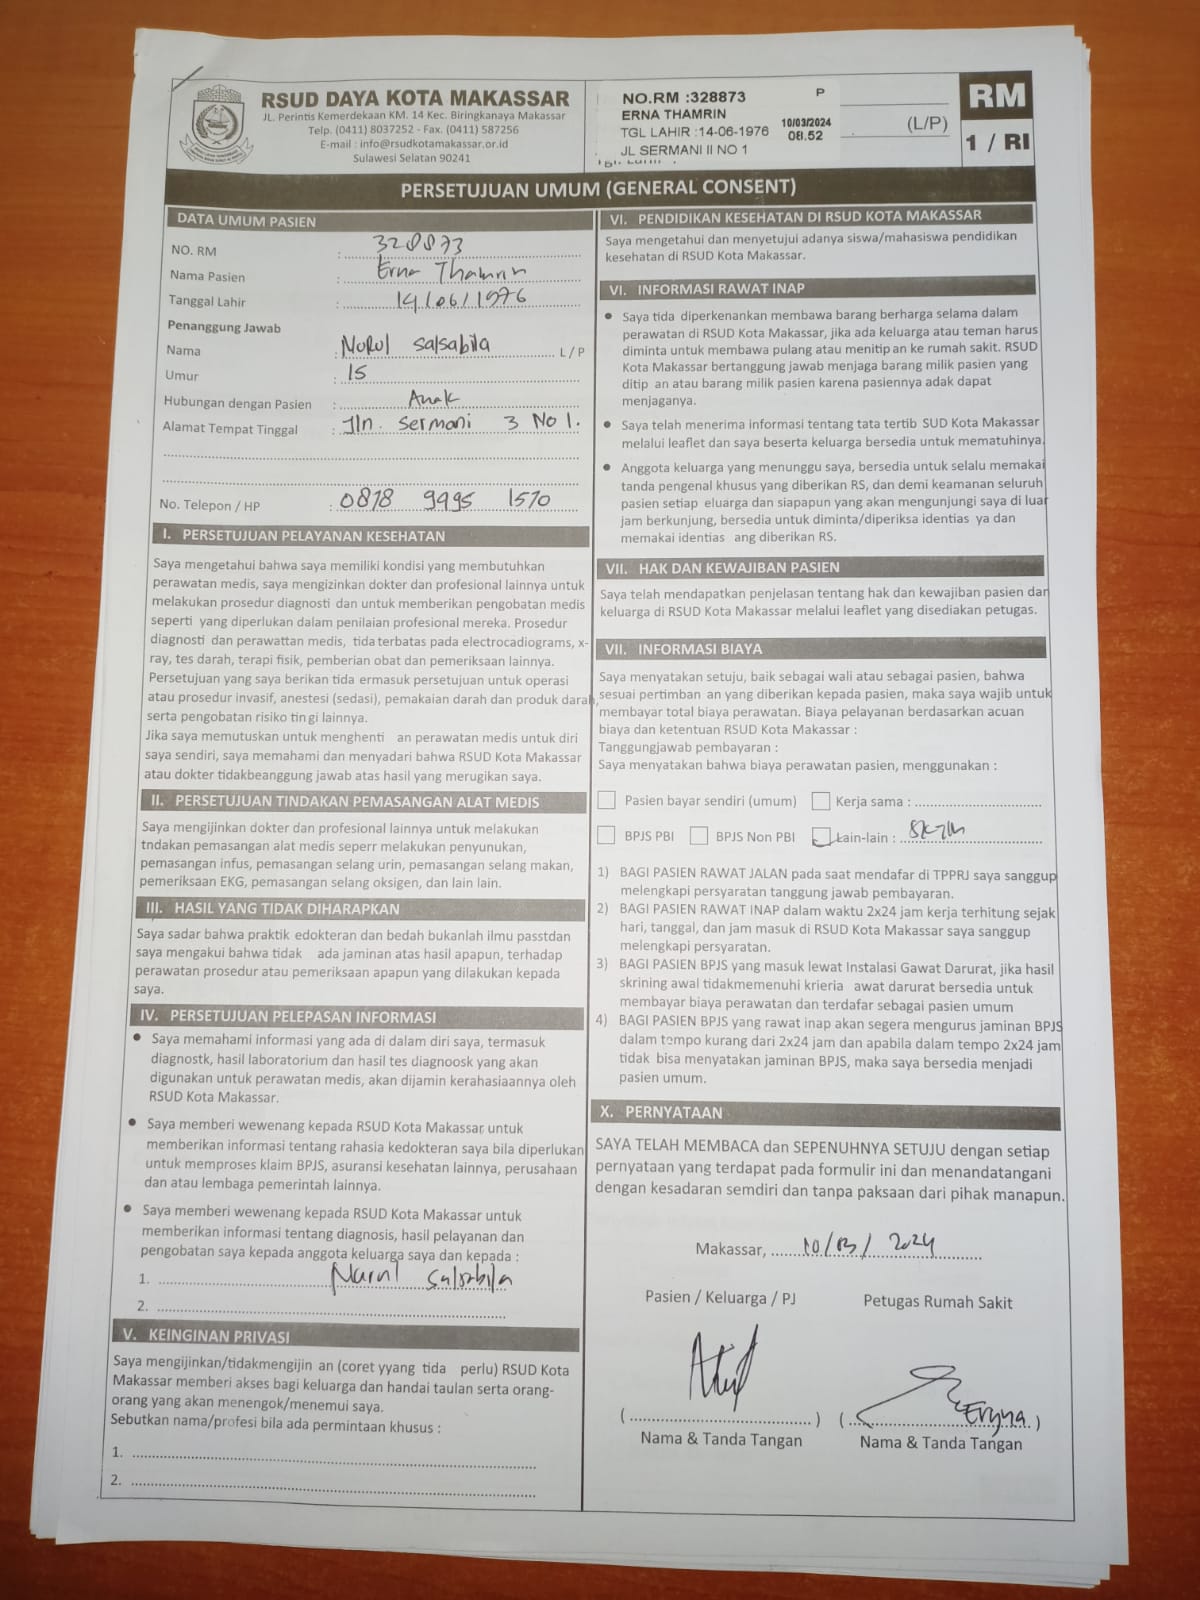 RSUD DAYA KOTA MAKASSAR
JL. Perintis Kemerdekaan KM. 14 Kec. Biringkanaya Makassar
Telp. (0411) 8037252 - Fax. (0411) 587256
E-mail : info@rsudkotamakassar.or.id
Sulawesi Selatan 90241
NO.RM :328873 P
ERNA THAMRIN
TGL LAHIR :14-06-1976
JL SERMANI II NO 1
10/03/2024
08.52
(L/P)
RM
1 / RI
PERSETUJUAN UMUM (GENERAL CONSENT)
DATA UMUM PASIEN
NO. RM : 328873
Nama Pasien : Erna Thamrin
Tanggal Lahir : 14/06/1976
Penanggung Jawab
Nama : Nurul Salsabila L / P
Umur : 15
Hubungan dengan Pasien : Anak
Alamat Tempat Tinggal : Jln. Sermani 3 No 1.
No. Telepon / HP : 0878 9995 1570
I. PERSETUJUAN PELAYANAN KESEHATAN
Saya mengetahui bahwa saya memiliki kondisi yang membutuhkan
perawatan medis, saya mengizinkan dokter dan profesional lainnya untuk
melakukan prosedur diagnosti dan untuk memberikan pengobatan medis
seperti yang diperlukan dalam penilaian profesional mereka. Prosedur
diagnosti dan perawattan medis, tida terbatas pada electrocadiograms, x-
ray, tes darah, terapi fisik, pemberian obat dan pemeriksaan lainnya.
Persetujuan yang saya berikan tida ermasuk persetujuan untuk operasi
atau prosedur invasif, anestesi (sedasi), pemakaian darah dan produk darah,
serta pengobatan risiko tin gi lainnya.
Jika saya memutuskan untuk menghenti an perawatan medis untuk diri
saya sendiri, saya memahami dan menyadari bahwa RSUD Kota Makassar
atau dokter tidakbeanggung jawab atas hasil yang merugikan saya.
II. PERSETUJUAN TINDAKAN PEMASANGAN ALAT MEDIS
Saya mengijinkan dokter dan profesional lainnya untuk melakukan
tndakan pemasangan alat medis seperr melakukan penyunukan,
pemasangan infus, pemasangan selang urin, pemasangan selang makan,
pemeriksaan EKG, pemasangan selang oksigen, dan lain lain.
III. HASIL YANG TIDAK DIHARAPKAN
Saya sadar bahwa praktik edokteran dan bedah bukanlah ilmu passtdan
saya mengakui bahwa tidak ada jaminan atas hasil apapun, terhadap
perawatan prosedur atau pemeriksaan apapun yang dilakukan kepada
saya.
IV. PERSETUJUAN PELEPASAN INFORMASI
• Saya memahami informasi yang ada di dalam diri saya, termasuk
diagnostk, hasil laboratorium dan hasil tes diagnoosk yang akan
digunakan untuk perawatan medis, akan dijamin kerahasiaannya oleh
RSUD Kota Makassar.
• Saya memberi wewenang kepada RSUD Kota Makassar untuk
memberikan informasi tentang rahasia kedokteran saya bila diperlukan
untuk memproses klaim BPJS, asuransi kesehatan lainnya, perusahaan
dan atau lembaga pemerintah lainnya.
• Saya memberi wewenang kepada RSUD Kota Makassar untuk
memberikan informasi tentang diagnosis, hasil pelayanan dan
pengobatan saya kepada anggota keluarga saya dan kepada :
1. Nurul Salsabila
2.
V. KEINGINAN PRIVASI
Saya mengijinkan/tidakmengijin an (coret yyang tida perlu) RSUD Kota
Makassar memberi akses bagi keluarga dan handai taulan serta orang-
orang yang akan menengok/menemui saya.
Sebutkan nama/profesi bila ada permintaan khusus :
1.
2.
VI. PENDIDIKAN KESEHATAN DI RSUD KOTA MAKASSAR
Saya mengetahui dan menyetujui adanya siswa/mahasiswa pendidikan
kesehatan di RSUD Kota Makassar.
VI. INFORMASI RAWAT INAP
• Saya tida diperkenankan membawa barang berharga selama dalam
perawatan di RSUD Kota Makassar, jika ada keluarga atau teman harus
diminta untuk membawa pulang atau menitip an ke rumah sakit. RSUD
Kota Makassar bertanggung jawab menjaga barang milik pasien yang
ditip an atau barang milik pasien karena pasiennya adak dapat
menjaganya.
• Saya telah menerima informasi tentang tata tertib SUD Kota Makassar
melalui leaflet dan saya beserta keluarga bersedia untuk mematuhinya.
• Anggota keluarga yang menunggu saya, bersedia untuk selalu memakai
tanda pengenal khusus yang diberikan RS, dan demi keamanan seluruh
pasien setiap eluarga dan siapapun yang akan mengunjungi saya di luar
jam berkunjung, bersedia untuk diminta/diperiksa identias ya dan
memakai identias ang diberikan RS.
VII. HAK DAN KEWAJIBAN PASIEN
Saya telah mendapatkan penjelasan tentang hak dan kewajiban pasien dan
keluarga di RSUD Kota Makassar melalui leaflet yang disediakan petugas.
VII. INFORMASI BIAYA
Saya menyatakan setuju, baik sebagai wali atau sebagai pasien, bahwa
sesuai pertimban an yang diberikan kepada pasien, maka saya wajib untuk
membayar total biaya perawatan. Biaya pelayanan berdasarkan acuan
biaya dan ketentuan RSUD Kota Makassar :
Tanggungjawab pembayaran :
Saya menyatakan bahwa biaya perawatan pasien, menggunakan :
Pasien bayar sendiri (umum) Kerja sama :
BPJS PBI BPJS Non PBI Lain-lain :
1) BAGI PASIEN RAWAT JALAN pada saat mendafar di TPPRJ saya sanggup
melengkapi persyaratan tanggung jawab pembayaran.
2) BAGI PASIEN RAWAT INAP dalam waktu 2x24 jam kerja terhitung sejak
hari, tanggal, dan jam masuk di RSUD Kota Makassar saya sanggup
melengkapi persyaratan.
3) BAGI PASIEN BPJS yang masuk lewat Instalasi Gawat Darurat, jika hasil
skrining awal tidakmemenuhi krieria awat darurat bersedia untuk
membayar biaya perawatan dan terdafar sebagai pasien umum
4) BAGI PASIEN BPJS yang rawat inap akan segera mengurus jaminan BPJS
dalam tempo kurang dari 2x24 jam dan apabila dalam tempo 2x24 jam
tidak bisa menyatakan jaminan BPJS, maka saya bersedia menjadi
pasien umum.
X. PERNYATAAN
SAYA TELAH MEMBACA dan SEPENUHNYA SETUJU dengan setiap
pernyataan yang terdapat pada formulir ini dan menandatangani
dengan kesadaran semdiri dan tanpa paksaan dari pihak manapun.
Makassar, 10/03/2024
Pasien / Keluarga / PJ Petugas Rumah Sakit
Nama & Tanda Tangan Nama & Tanda Tangan